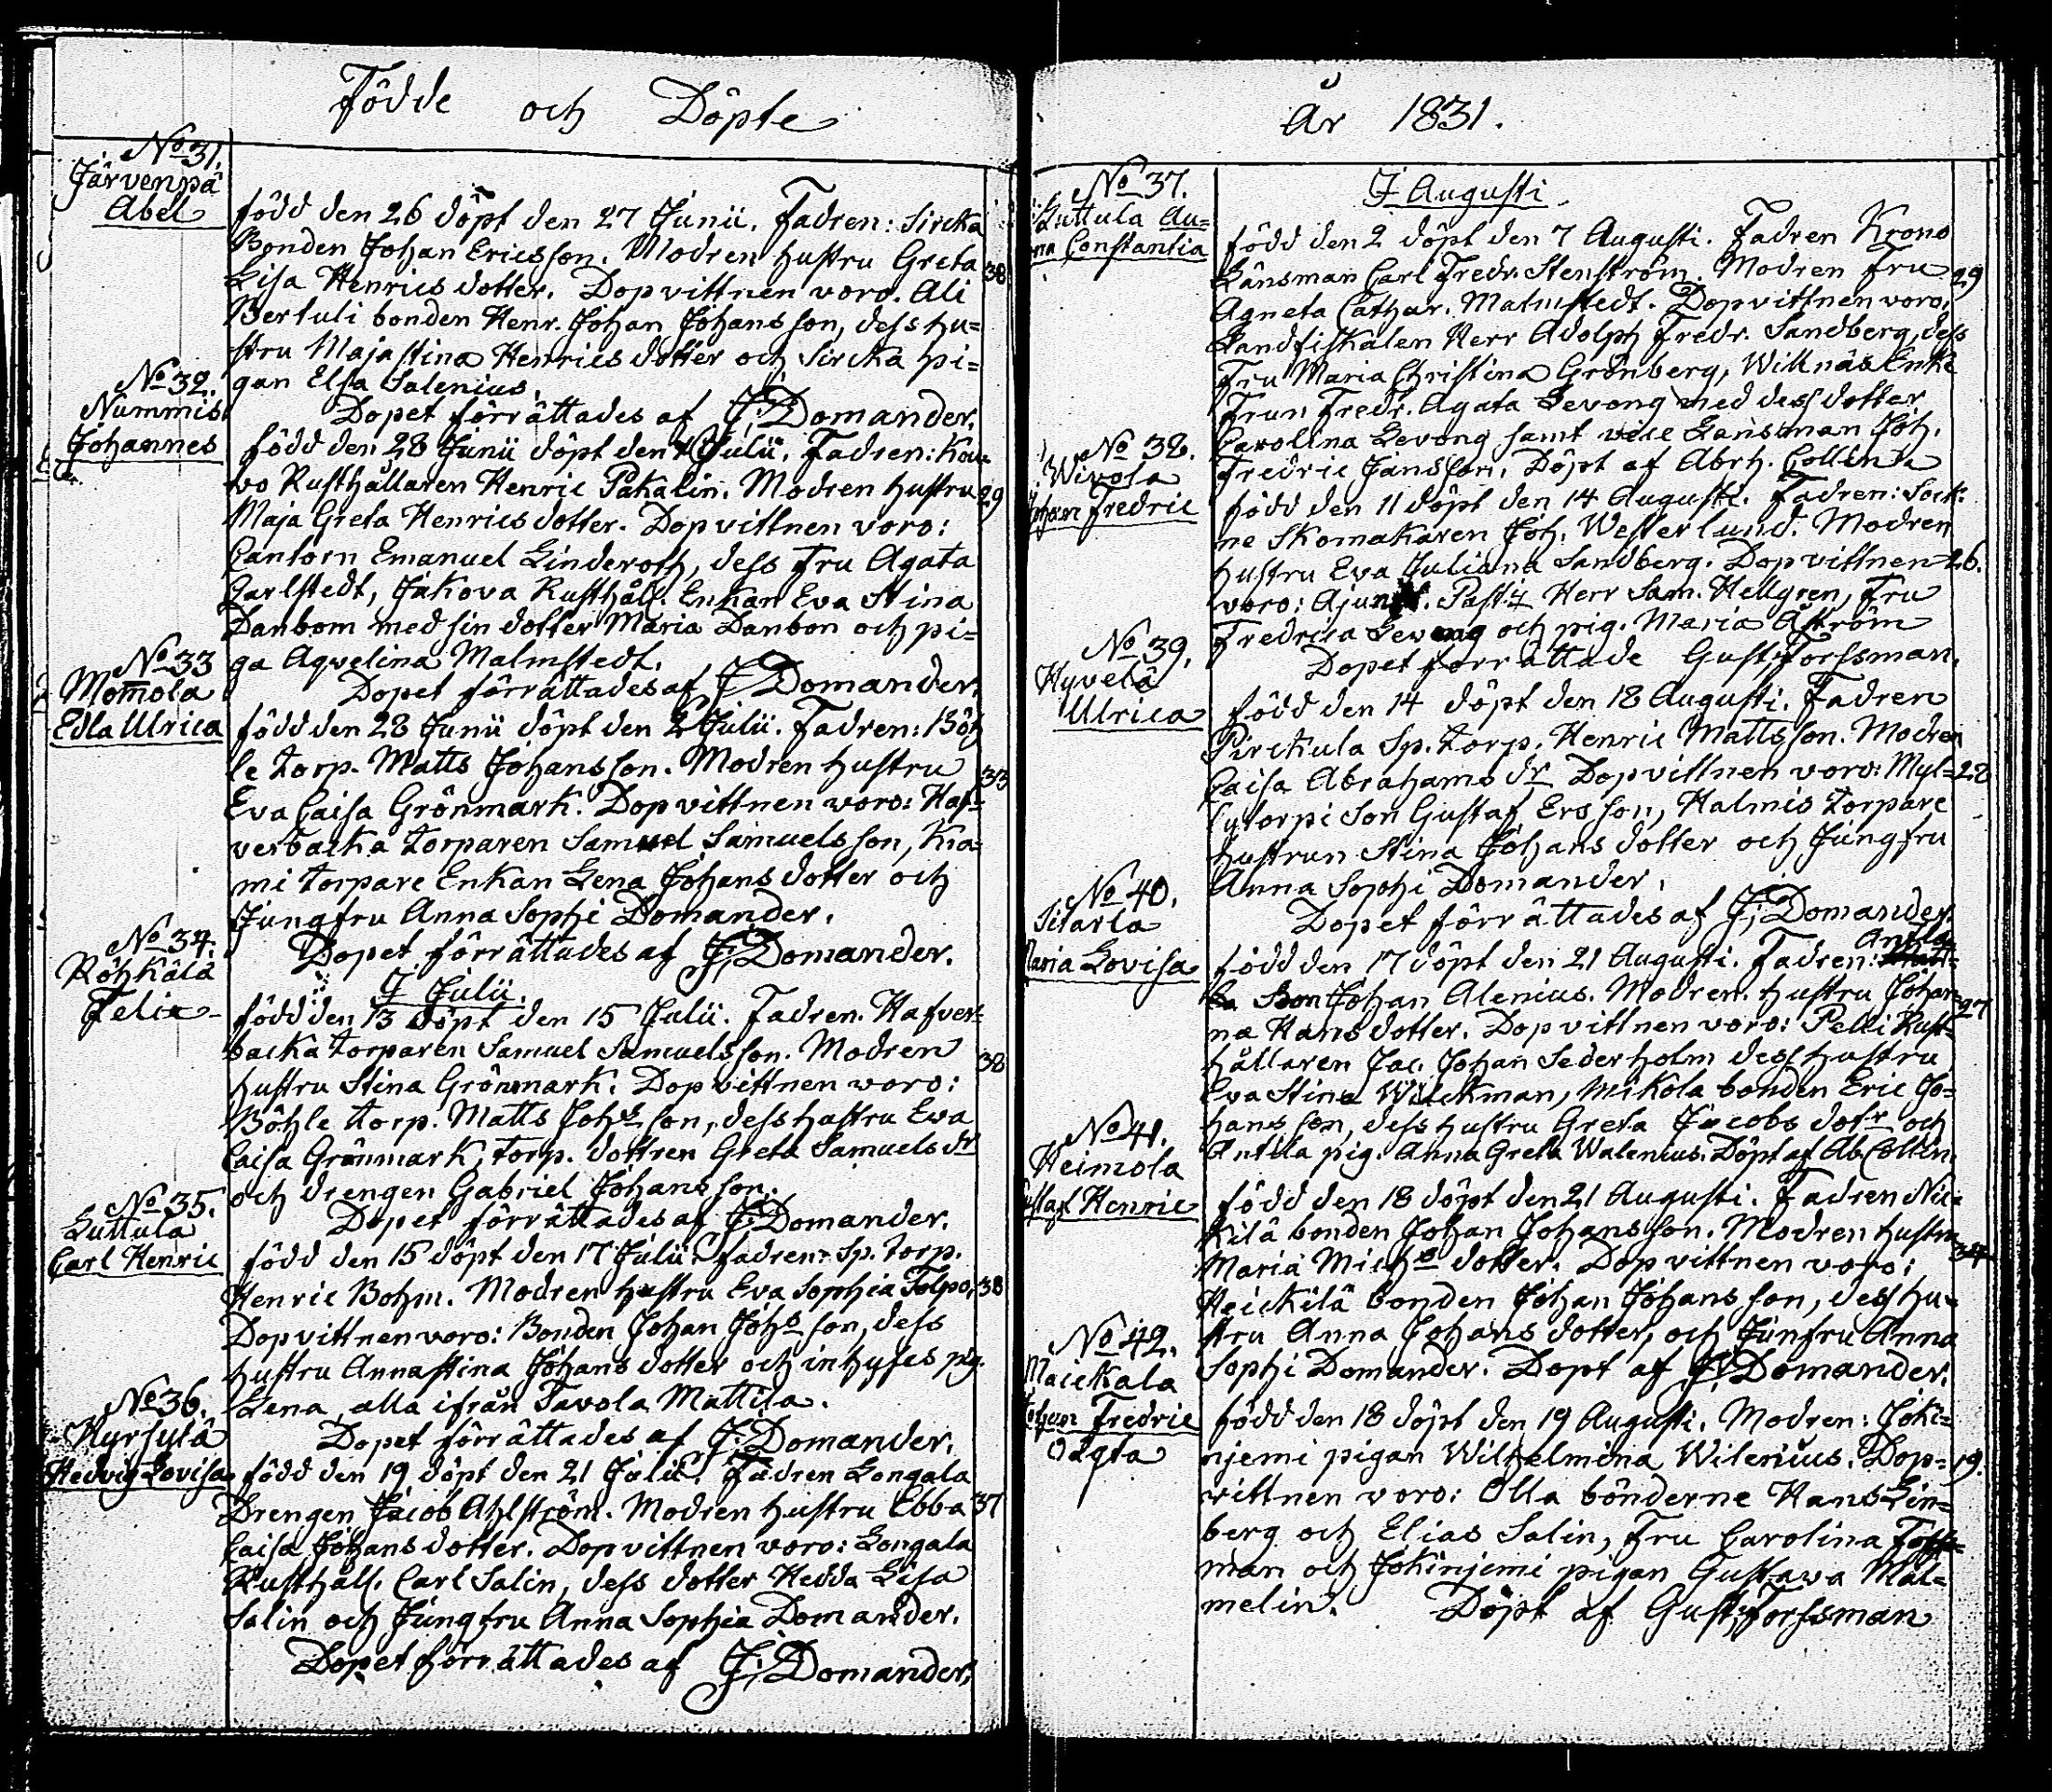 Födde och Döpte
No 31.
Järvenpä
Abel
född den 26 döpt den 27 Junii. Fadren: Sircka
Bonden Johan Ericsson. Modren hustru Greta
Lisa Henrics dotter. Dopvittnen voro. Ali 38
Bertuli bonden Henr. Johan Johansson, dess hu=
stru Maja Stina Henrics dotter och Sircka pi=
gan Elsa Salenius.
Dopet förrättades af J. Domander.
No 32.
Nummis
Johannes
född den 28 Junii döpt den Julii. Fadren: Kou=
vo Rusthållaren Henric Pakalin. Modren hustru 29
Maja Greta Henrics dotter. Dopvittnen voro:
Cantorn Emanuel Linderoth, dess Fru Agata
Carlstedt, Jakova Rusthåll. Enkan Eva Stina
Danbom med sin dotter Maria Danbon och pi=
ga Aqvelina Malmstedt.
Dopet förrättades af J. Domander.
No 33
Mom̅ola
Edla Ulrica
född den 28 Junii döpt den 2 Julii. Fadren: Böh
le torp. Matts Johansson. Modren hustru 33
Eva Caisa Grönmark. Dopvittnen voro: Haf=
verbacka torparen Samuel Samuelsson, Kra=
mi torpare Enkan Lena Johans dotter och
Jungfru Anna Sophi Domander.
Dopet förrättades af J. Domander.
J Julii.
No 34.
Röhkälä
Felix
född den 13 döpt den 15 Julii. Fadren. Hafver=
backa torparen Samuel Samuelsson. Modren 38
hustru Stina Grönmark. Dopvittnen voro:
Böhle torp. Matts Johs son, dess hustru Eva
Caisa Grönmark, torp. dottren Greta Samuels dr
och drengen Gabriel Johansson.
Dopet förrättades af J. Domander.
No 35.
Luttula
Carl Henric
född den 15 döpt den 17 Julii. Fadren: Sp. torp.
Henric Bohm. Modren hustru Eva Sophia Tolpo, 38
Dopvittnen voro: Bonden Johan Johs son, dess
hustru Annastina Johans dotter och inhyses pig.
Lena, alla ifrån Tavola Mattila.
Dopet förrättades af J. Domander.
No 36.
Hyrsylä
Hedvig Lovisa
född den 19 döpt den 21 Julii. Fadren Longala
Drengen Jacob Ahlström. Modren hustru Ebba 37
Caisa Johans dotter. Dopvittnen voro: Longala
Rusthåll. Carl Salin, dess dotter Hedda Lisa
Salin och Jungfru Anna Sophia Domander.
Dopet förrättades af J. Domander.
År 1831.
J Augusti.
No 37.
Luttula An=
na Constantia
född den 2 döpt den 7 Augusti. Fadren Krono
Länsman Carl Fredr. Stenström. Modren Fru 29
Agneta Cathar. Malmstedt. Dopvittnen voro,
Landfiskalen Herr Adolph Fredr. Sandberg, dess
Fru Maria Christina Grönberg, Willnäs Enke
Frun Fredr. Agata Levong med dess dotter
Carolina Levong samt vice Länsman Joh.
Fredric Jansson. Döpt af Abrh. Collin
No 38.
Wivola
Johan Fredric
född den 11 döpt den 14 Augusti. Fadren: Sock=
ne Skomakaren Joh. Westerlund. Modren
hustru Eva Juliana Sandberg. Dopvittnen 26.
voro: Herr Sam. Hellgren, Fru
Fredrica Levong och pig. Maria Åström
Dopet förrättade Gust. Forssman.
No 39.
Hyvelä
Ulrica
född den 14 döpt den 18 Augusti. Fadren
Pirckula Sp. torp. Henric Mattsson. Modren
Caisa Abrahams dr Dopvittnen voro: Myl= 28
lytorpi Son Gustaf Ersson, Halmis torpare
hustrun Stina Johans dotter och Jungfru
Anna Sophi Domander.
Dopet förrättades af J. Domander.
No 40.
Sitarla
Maria Lovisa
född den 17 döpt den 21 Augusti. Fadren: Antla
Bon Johan Alenius. Modren. hustru Johan= 27
na Hans dotter. Dopvittnen voro: Pelli Rust=
hållaren Jac. Johan Sederholm dess hustru
Eva Stina Wilckman, Mikola bonden Eric Jo=
hansson, dess hustru Greta Jacobs dotr och
Antila pig. Anna Greta Walenius. Döpt af Ab Collin.
No 41.
Heimola
Gustaf Henric
född den 18 döpt den 21 Augusti. Fadren Nic=
kilä bonden Johan Johansson. Modren hustru 34
Maria Michs dotter. Dopvittnen voro:
Heickilä bonden Johan Johansson, dess hu=
stru Anna Johans dotter, och Junfru Anna
Sophi Domander. Döpt af J. Domander.
No 42.
Maickala
Johan Fredric
Oägta
född den 18 döpt den 19 Augusti. Modren: Joki=
njemi pigan Wilhelmina Wilenius. Dop= 19.
vittnen voro: Olla bönderne Hans Lin=
berg och Elias Salin, Fru Carolina Forss=
man och Jokinjemi pigan Gustava Mal=
melin. Döpt af Gust. Forssman